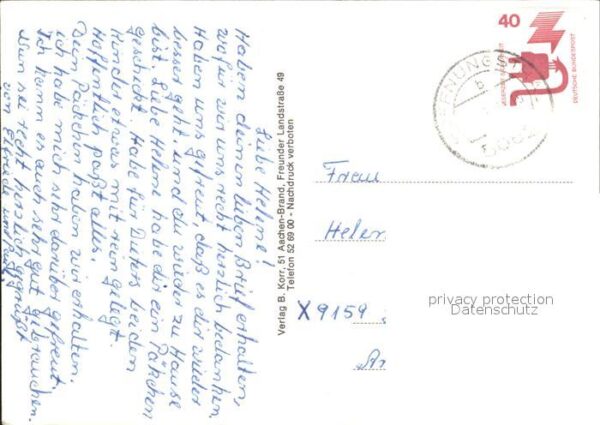 Liebe Helene!
Haben deinen lieben Brief erhalten,
wofür wir uns recht herzlich bedanken.
Haben uns gefreut, daß es dir wieder
besser geht, und du wieder zu Hause
bist. Liebe Helene habe dir ein Päkchen
geschickt. Habe für Dieters beiden
Kinder etwas mit rein gelegt.
Hoffentlich paßt alles.
Dein Päckchen haben wir erhalten.
ich habe mich sehr darüber gefreut.
Ich kann es auch sehr gut gebrauchen.
Nun sei recht herzlich gegrüßt
von und
Verlag B. Korr, 51 Aachen-Brand, Freunder Landstraße 49
Telefon 52 69 00 - Nachdruck verboten
40
JEDERZEIT SICHERHEIT
DEUTSCHE BUNDESPOST
Frau
Helen
X 9159
privacy protection
Datenschutz